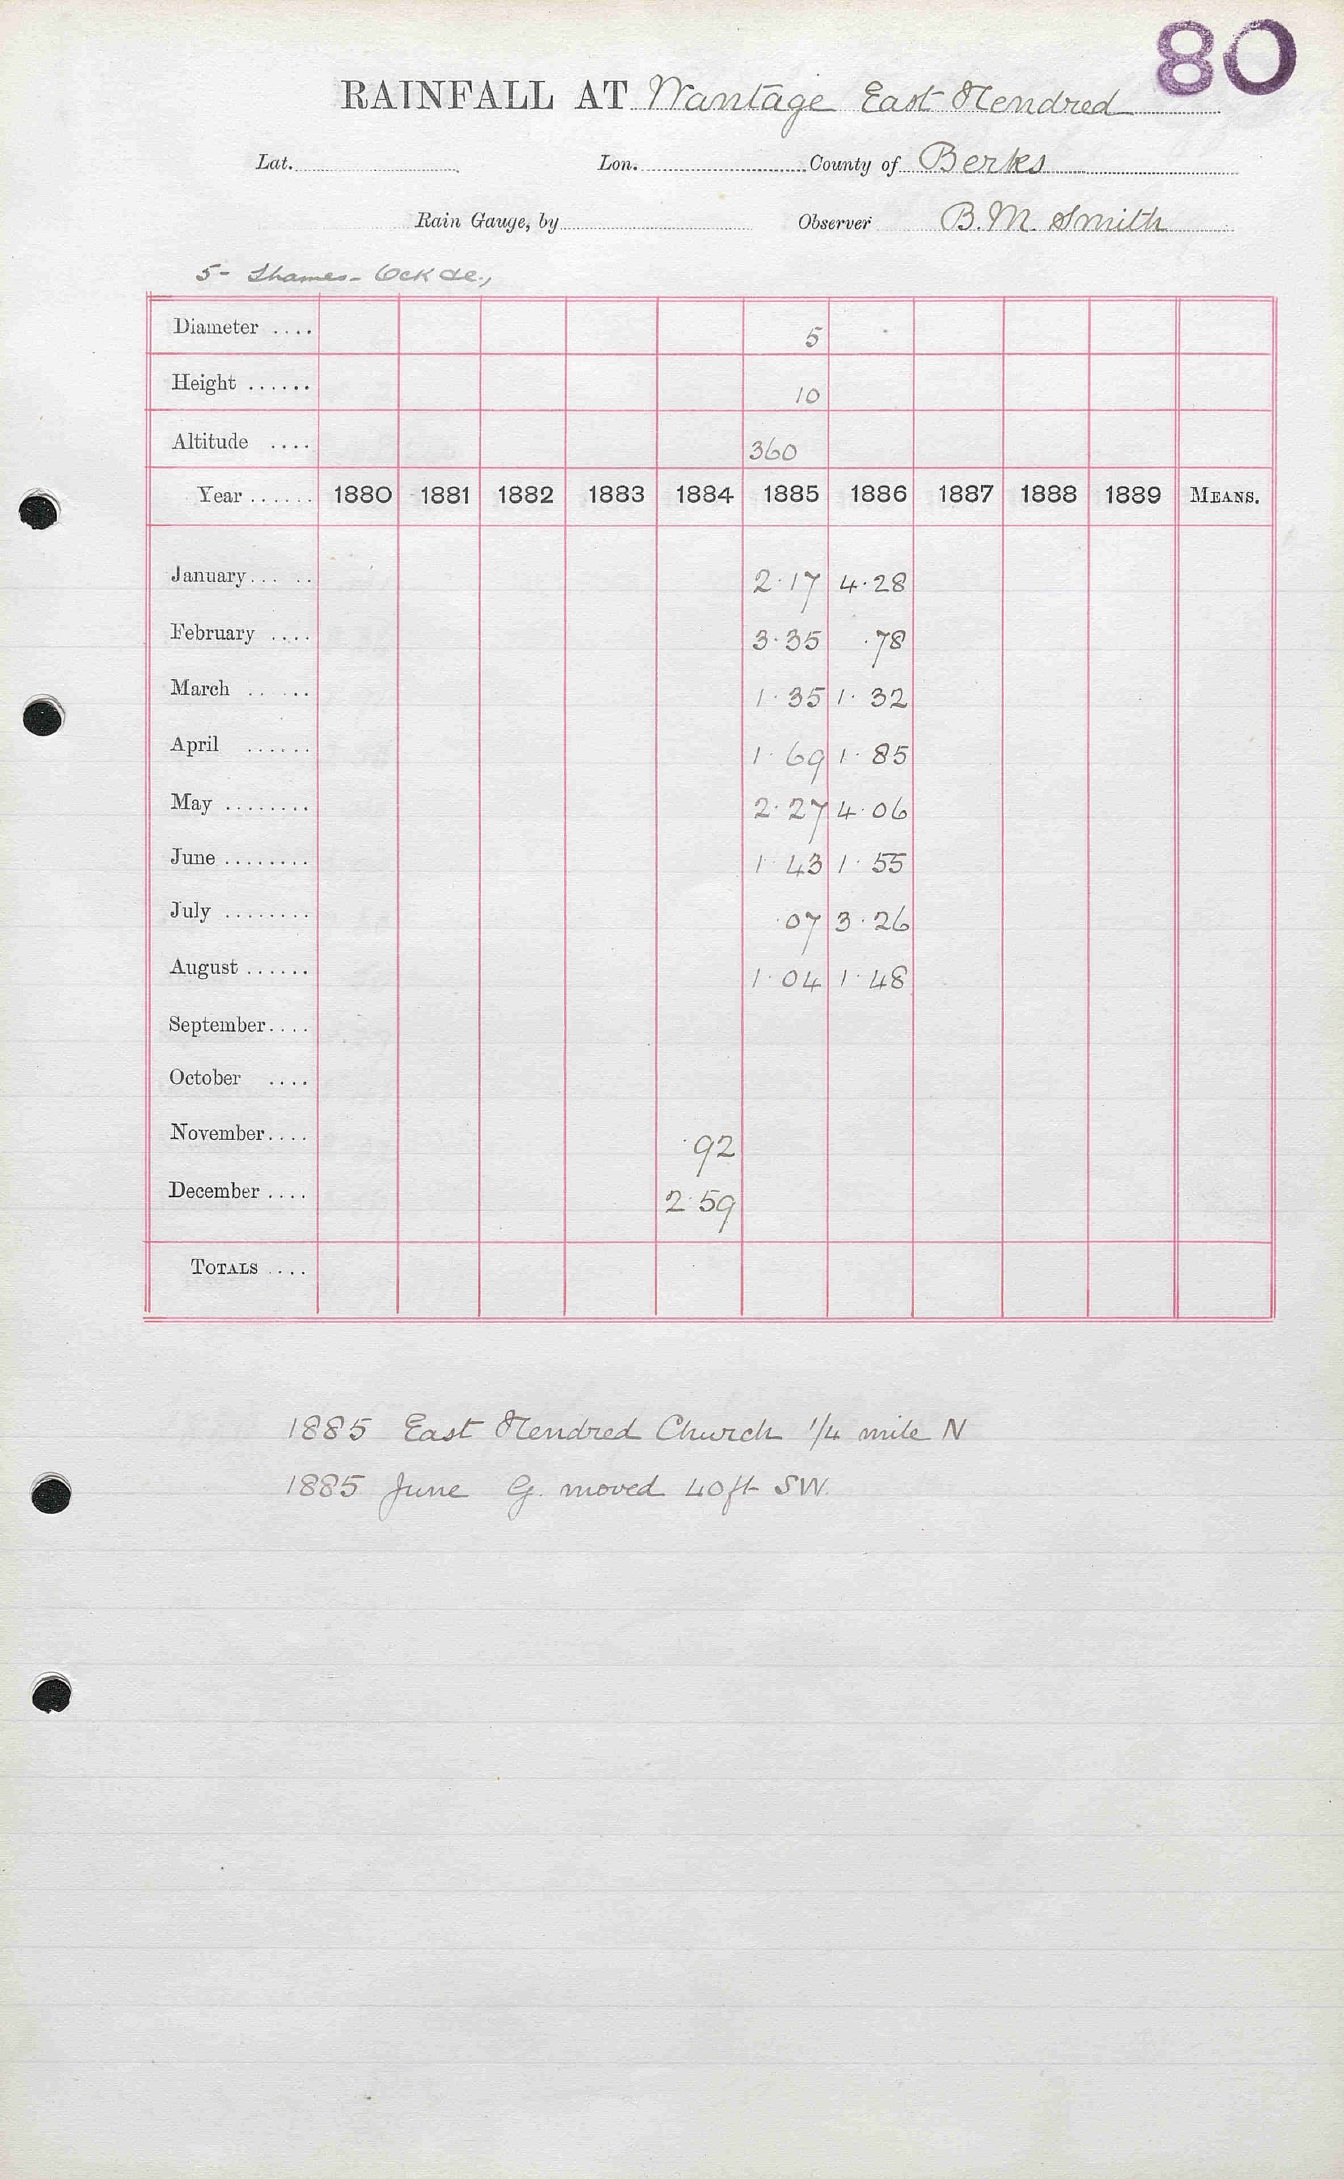 80
RAINFALL AT Wantage East Hendred
Lat. Lon. County of Berks
Rain Gauge, by Observer B. M. Smith
5 - Thames - Ock &c.,
Diameter .... 5
Height ...... 10
Altitude .... 360
Year ...... 1880 1881 1882 1883 1884 1885 1886 1887 1888 1889 MEANS.
January ... .. 2.17 4.28
February .... 3.35 .78
March .. ... 1.35 1.32
April ...... 1.69 1.85
May ........ 2.27 4.06
June ........ 1.43 1.55
July ........ .07 3.26
August ...... 1.04 1.48
September ....
October ....
November .... .92
December .... 2.59
TOTALS ....
1885 East Hendred Church 1/4 mile N
1885 June G. moved 40ft SW.